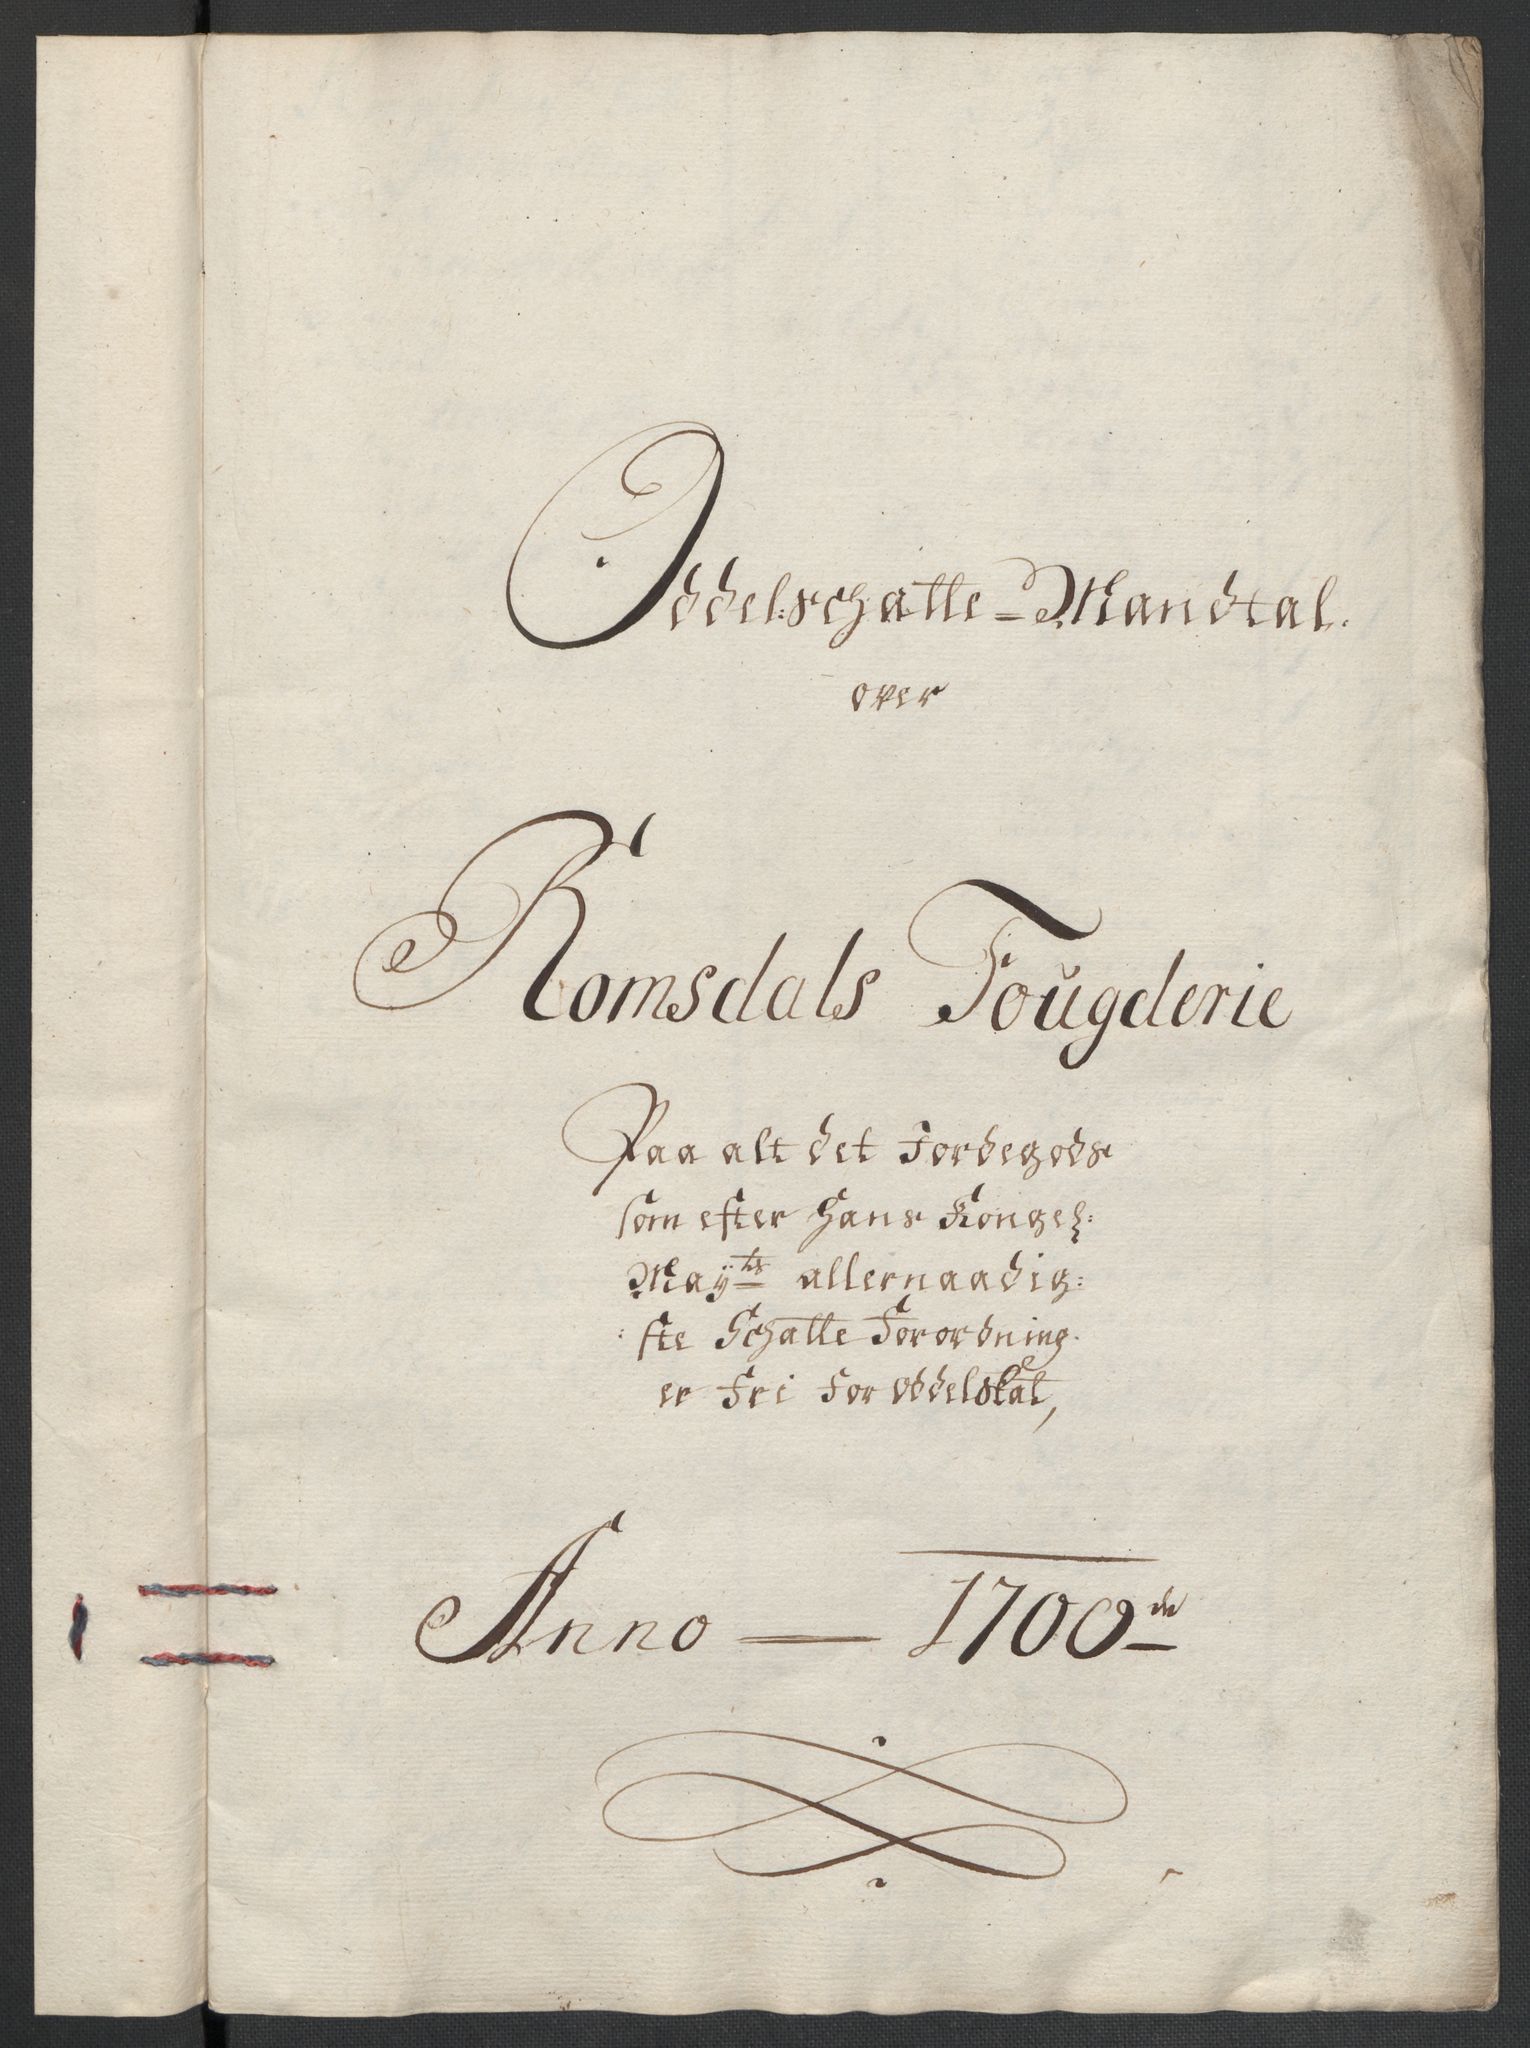 Oddel:schatte-Mandtal.
over
Romsdals Fougderie
Paa alt det Jordegods
som efter Hans Kongel:
Mayts allernaadig:
:ste Schatte Forordning
er Fri for oddelskat,
Anno — 1700de